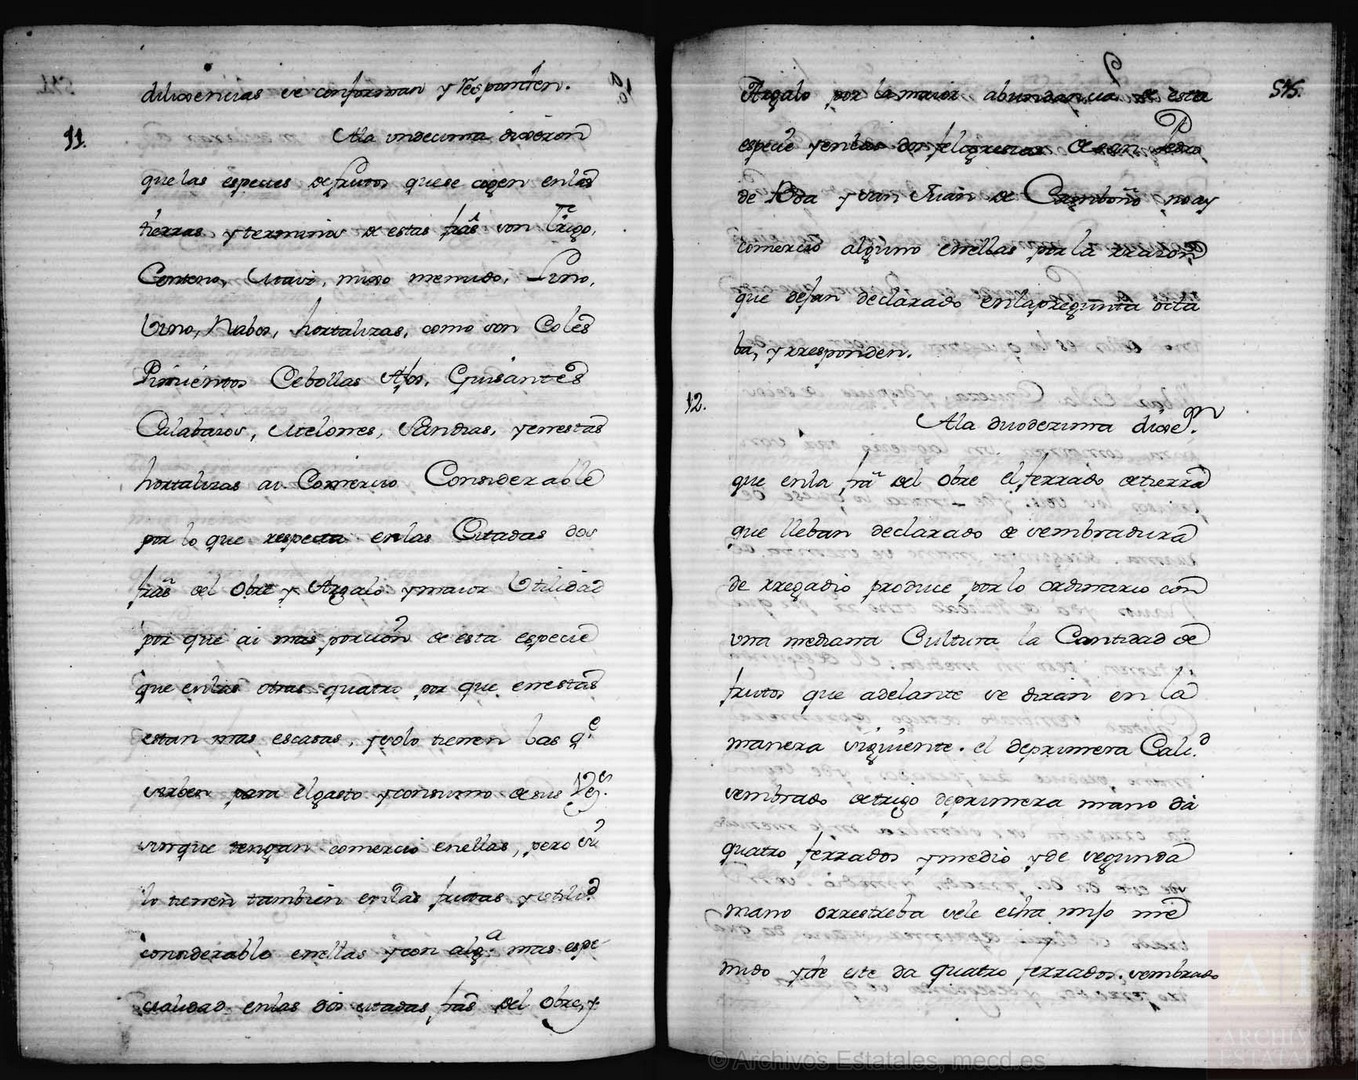 diligencias se conforman y responden.
11.
Ala undecima dixeron
que las especies de frutos que se cogen en las
tierras y terminos de estas frâs son Trigo,
Centeno, Maiz, mixo menudo, Lino,
Vino, Nabos, hortalizas, como son Coles
Pimientos Cebollas Afos, Guisantes
Calabazos, Melones, Sandias, y en estas
hortalizas ai Comercio Considerable
por lo que respecta en las Citadas dos
frâs del Obre y Argalo y maior Utilidad
por que ai mas porcion de esta especie
que en las otras quatro por que en estas
estan mas escasas, y solo tienen las q.e
sirben para el gasto y consumo de sus Vez.s
sin que tengan comercio en ellas, pero si
lo tienen tambien en las frutas y utilid.d
considerable en ellas y con alg.a mas espe-
cialidad en las dos citadas frâs del Obre, y
545.
Argalo por la maior abundancia de esta
especie y en las dos feligresias de San Pedro
de Boa y San Juan de Camboño no ay
comercio alguno en ellas por la rrazon
que dejan declarado en la pregunta octa
ba, y rresponden.
12.
Ala duodezima dixe.on
que en la frâ del Obre el ferrado de tierra
que lleban declarado de sembradura
de rregadio produce por lo ordinario con
una mediana Cultura la Cantidad de
frutos que adelante se diran en la
manera siguiente. el de primera Cali.d
sembrado de trigo de primera mano da
quatro ferrados y medio y de segunda
mano o rrestreba se le echa mijo me
nudo y de este da quatro ferrados. sembrado
© Archivos Estatales, mecd.es
ARCHIVOS
ESTATALES